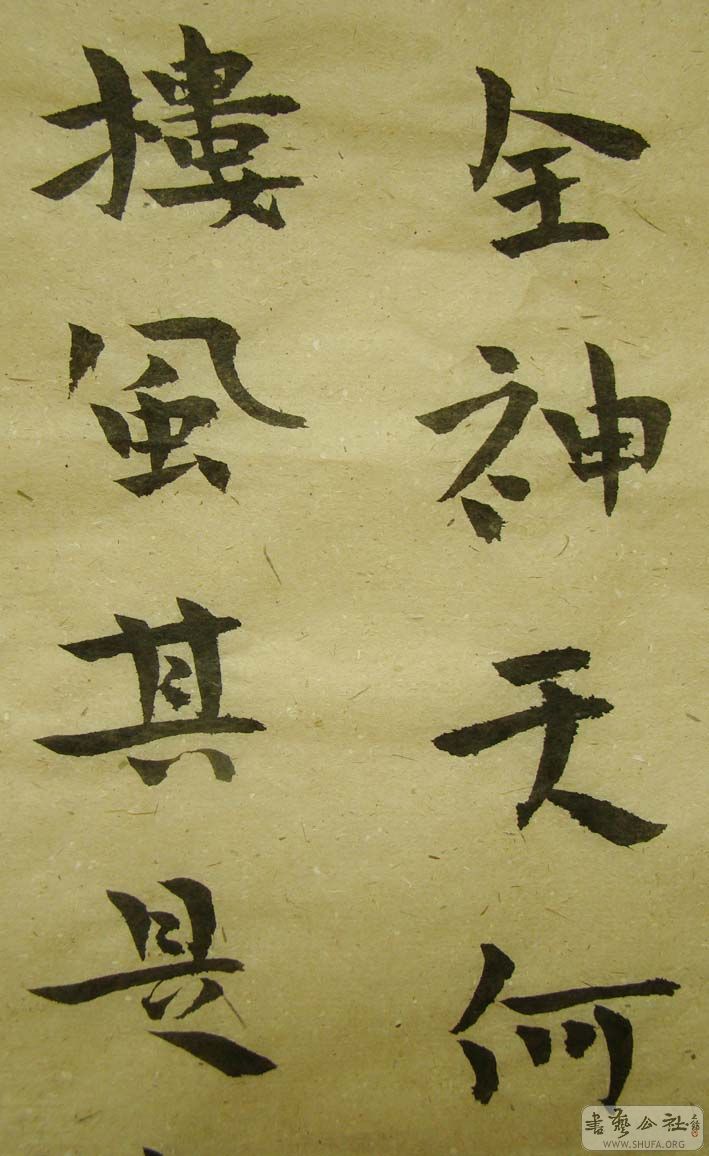 全神天何
樓風其是
書藝公社
WWW.SHUFA.ORG